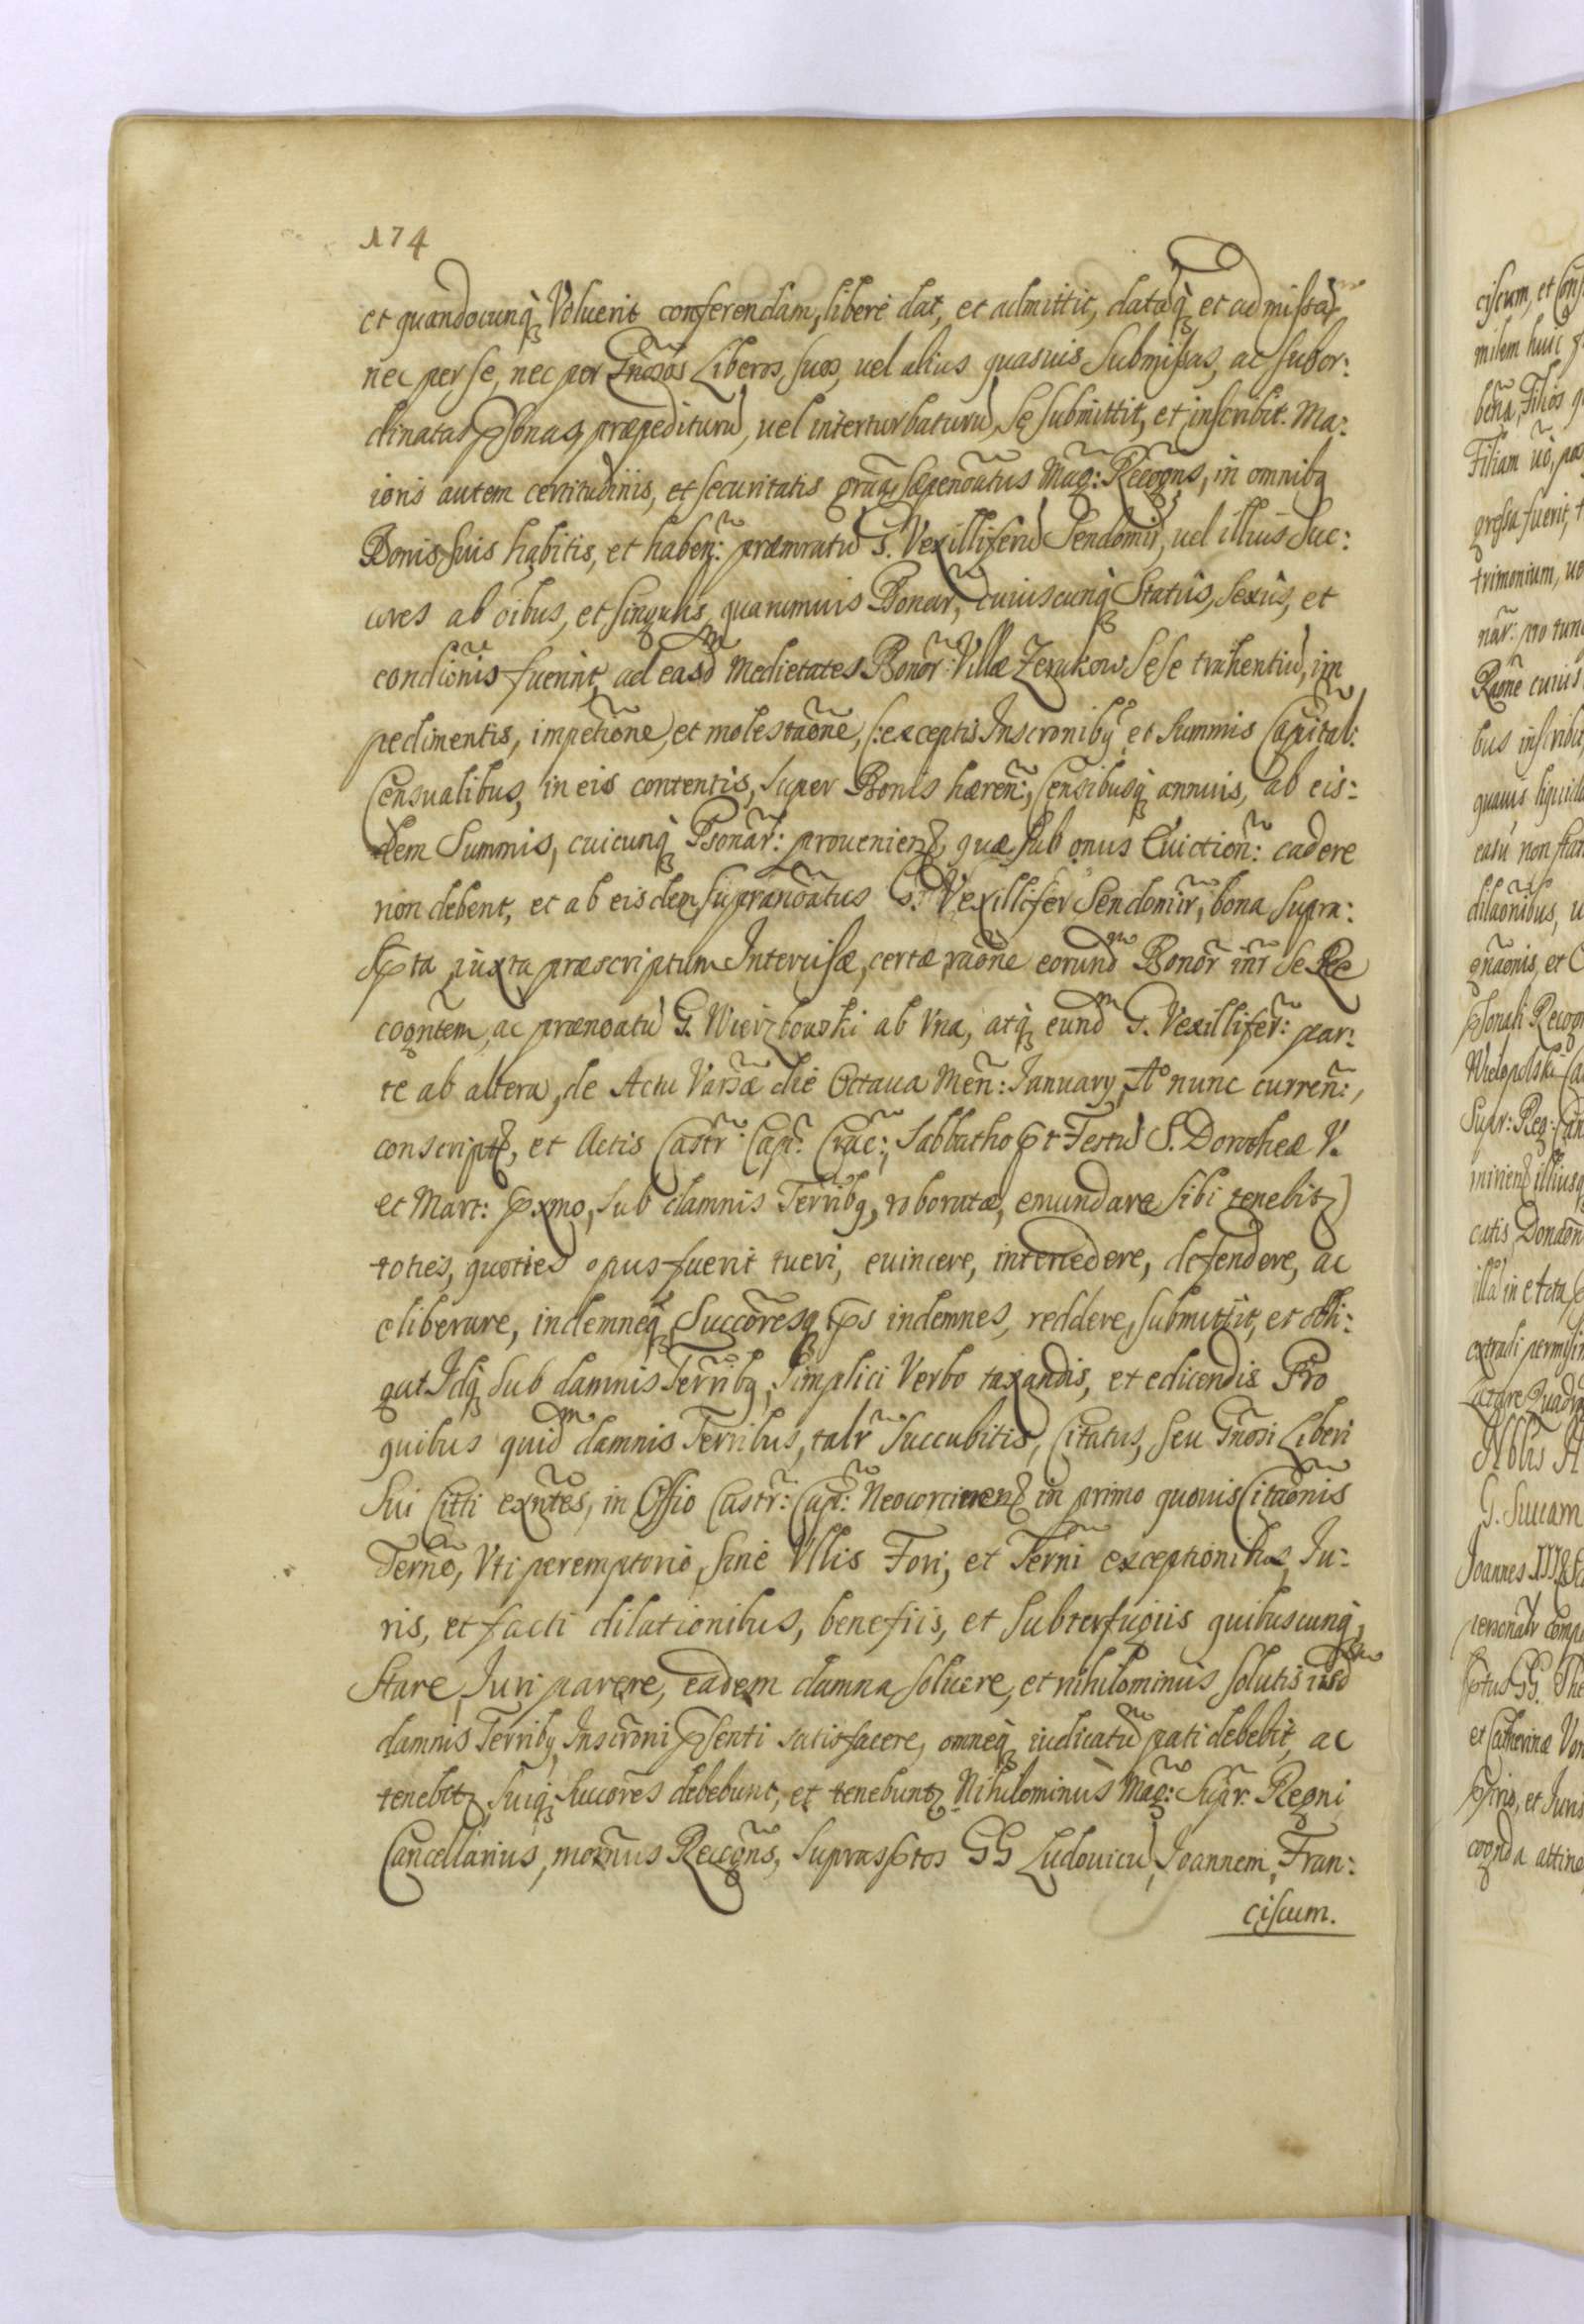 174
et quandocunq́ꝫ Voluerit conferendam, liberè dat, et admittit, datàq́ꝫ et admissà,
nec per se, nec per Gnosos Liberos, suos, uel alius quasuis Submissas, ac subor:
dinatas psonas, præpediturũ, uel interturbaturũ, Se submittit, et inscribit. Ma:
ioris autem certitudinis, et securitatis grãq, sæpenõatus Mag: Recogns, in omnibq
Bonis suis habitis, et haben: præmratũ G. Vexilliferũ Sendomir, uel illius Suc:
cores ab oibus, et singulis, quarumuis Psonar, cuiuscunq́ꝫ Statûs, Sexûs, et
condiõnis fuerint, ad easd Medietates Bonor: Villæ Zerakow Sese trahentiũ, im
pedimentis, impetione, et molestaõne, (:exceptis Inscronibq et Summis Capital:
Censualibus, in eis contentis, super Bonis hæren:, Censibusq́ꝫ annuis, ab eis:
dem Summis, cuicunq́ꝫ Psonar: prouenien, quæ sub onus Euiction: cadere
non debent, et ab eisdem supranõatus G. Vexillifer Sendomir, bona supra:
spta iuxta præscriptum Intercisæ, certæ raõne eorund Bonor inr se Re
cogntem, ac prænoatũ G. Wierzbowski ab Vna, atq́ꝫ eund G. Vexillifer: par:
te ab altera, de Actu Varsæ die Octaua Men: January, Aº nunc curren:,
conscript, et Actis Castr: Cap: Crac:, Sabbatho pt Festũ S. Dorotheæ V.
et Mart: pxmo, sub damnis Terribq, roboratæ, emundare sibi tenebit)
toties, quoties opus fuerit tueri, euincere, intercedere, defendere, ac
eliberare, indemneq́ꝫ Succoresq ips indemnes, reddere, submittit, et obli:
gat Idq́ꝫ sub damnis Terribq, simplici Verbo taxandis, et edicendis Pro
quibus quid damnis Terribus, talr Succubitis, Citatus, seu Gnosi Liberi
Sui Citti exntes, in Offio Castr: Cap: Neocorcinen in primo quouis Citaõnis
Termo, Vti peremptorio, sine Vllis Fori, et Terni exceptionibus, Iu:
ris, et facti dilationibus, benefiis, et subterfugiis quibuscunq́ꝫ
Stare, Iuri parere, eadem damna soluere, et nihilominus solutis iisd
damnis Terribq, Inscroni psenti satisfacere, omneq́ꝫ iudicatũ pati debebit, ac
tenebit, Suiq́ꝫ Succores debebunt, et tenebunt. Nihilominus Mag: Supr: Regni
Cancellarius, mornus Recogns, supraspptos GG Ludouicũ, Joannem, Fran:
ciscum.